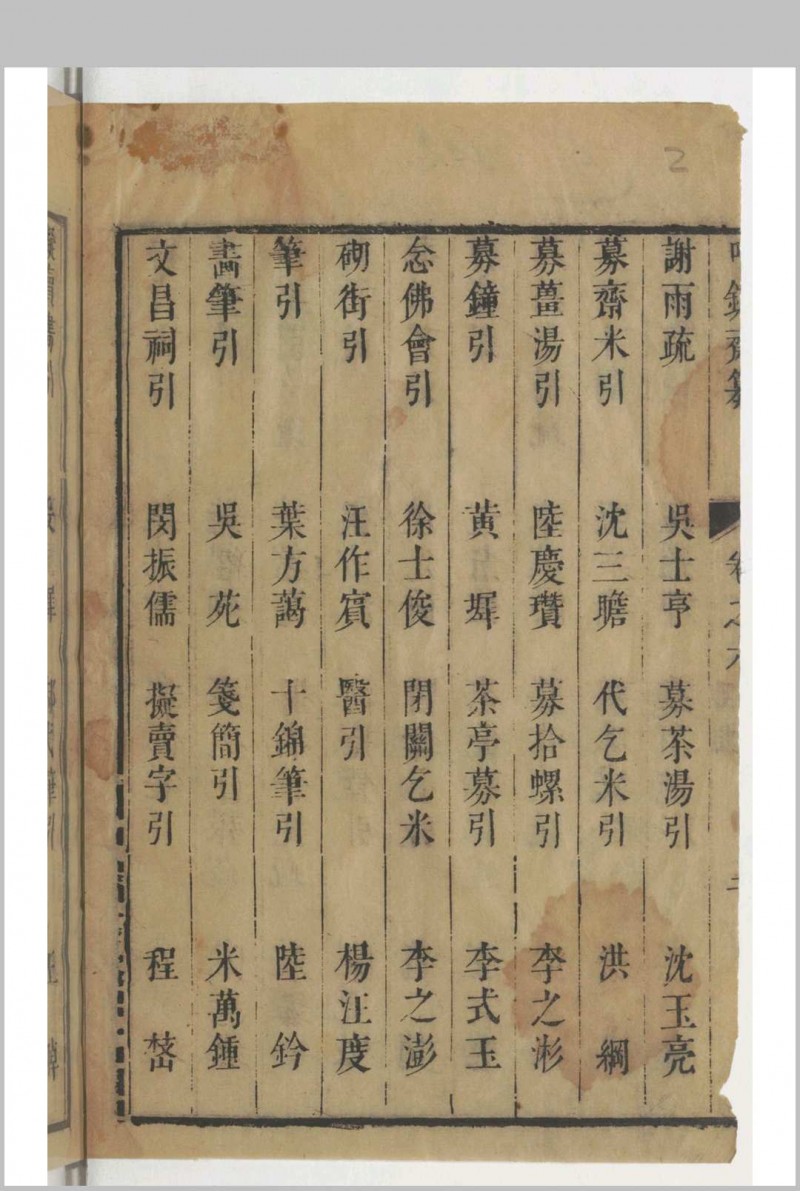 2
謝雨疏 吳士亨 募茶湯引 沈玉亮
募齋米引 沈三曕 代乞米引 洪綱
募薑湯引 陸慶瓚 募拾螺引 李之浵
募鐘引 黃墀 茶亭募引 李式玉
念佛會引 徐士俊 閉關乞米 李之澎
砌街引 汪作賓 醫引 楊汪度
筆引 葉方藹 十錦筆引 陸鈐
畵筆引 吳苑 箋簡引 米萬鍾
文昌祠引 閔振儒 擬賣字引 程